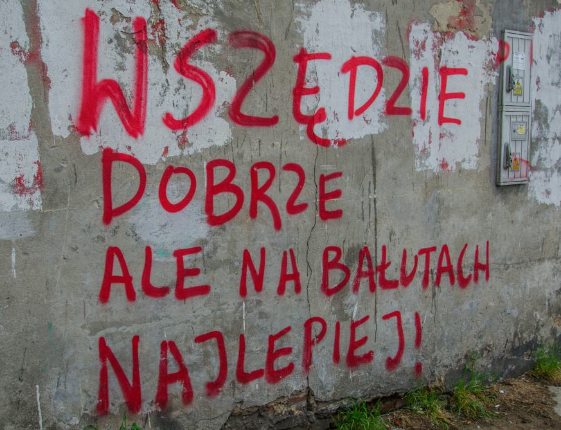 WSZĘDZIE
DOBRZE
ALE NA BAŁUTACH
NAJLEPIEJ!